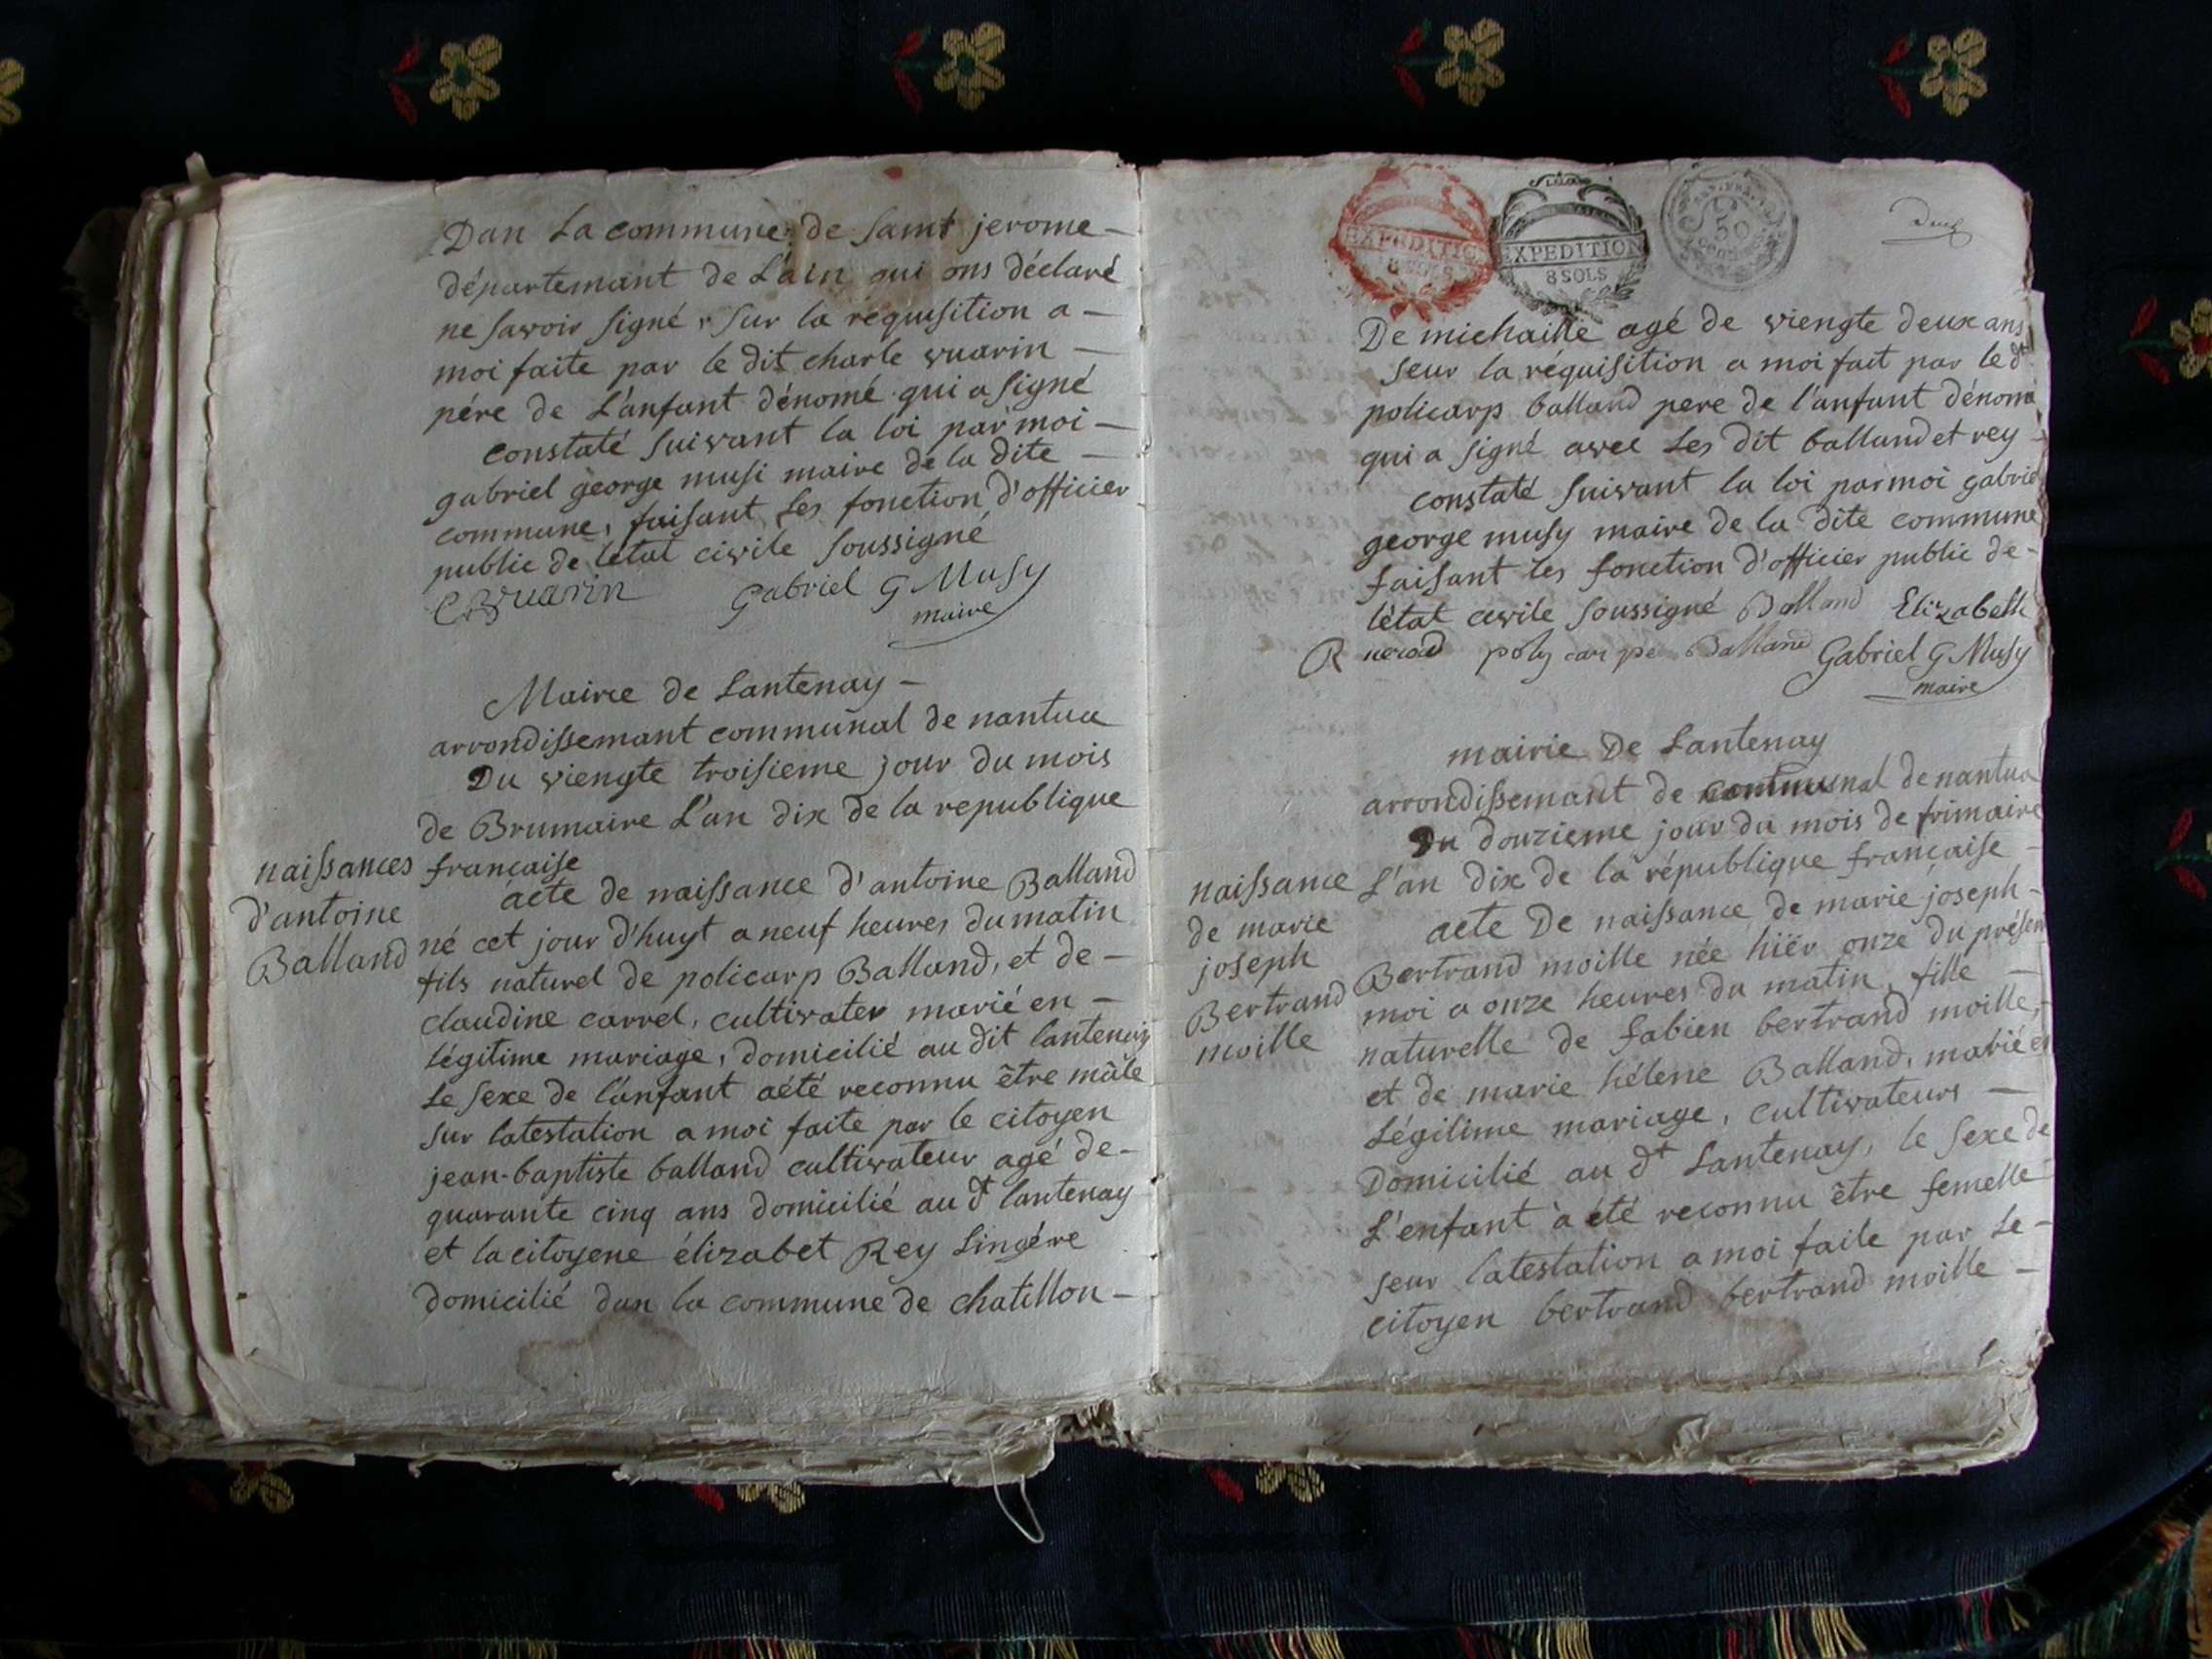 Dan La commune de Saint jerome -
départemant de L'ain qui ons déclaré
ne savoir signé, sur la réquisition a -
moi faite par le dit charle vuarin -
pére de L'anfant dénomé qui a signé
constaté suivant la loi par moi -
gabriel george musi maire de la dite -
commune, faisant les fonction d'officier
public de létat civile soussigné
C vuarin Gabriel G Musy
maire
Mairie de Lantenay -
arrondissemant communal de nantua
Du viengte troisieme jour du mois
de Brumaire L'an dix de la republique
française
naissances
d'antoine
Balland
acte de naissance d'antoine Balland
né cet jour d'huyt a neuf heures du matin
fils naturel de policarp Balland, et de -
claudine carrel, cultivater marié en -
légitime mariage, domicilié au dit lantenay
Le sexe de l'anfant aété reconnu être mâle
sur latestation a moi faite par le citoyen
jean-baptiste balland cultivateur agé de -
quarante cinq ans domicilié au dt lantenay
et la citoyene élizabet Rey Lingére
domicilié dan la commune de chatillon -
EXPEDITION
8 SOLS
EXPEDITION
8 SOLS
50
De michaille agé de viengte deux ans
seur la réquisition a moi fait par le dt
policarp balland pere de l'anfant dénomé
qui a signé avec Les dit balland et rey -
constaté suivant la loi par moi gabriel
george musy maire de la dite commune
faisant les fonction d'officier public de -
létat civile soussigné Balland Elizabeth
R polycarpe Balland Gabriel G Musy
maire
mairie De Lantenay
arrondissemant de communal de nantua
Du douzieme jour du mois de frimaire
L'an dix de la république française -
naissance
de marie
joseph
Bertrand
moille
acte De naissance de marie joseph -
Bertrand moille née hiër onze du présent
moi a onze heures du matin, fille -
naturelle de fabien bertrand moille, -
et de marie hélene Balland, marié en
Légitime mariage, cultivateurs -
Domicilié au dt Lantenay, le sexe de
L'enfant à été reconnu être femelle
seur latestation a moi faite par Le -
citoyen bertrand bertrand moille -